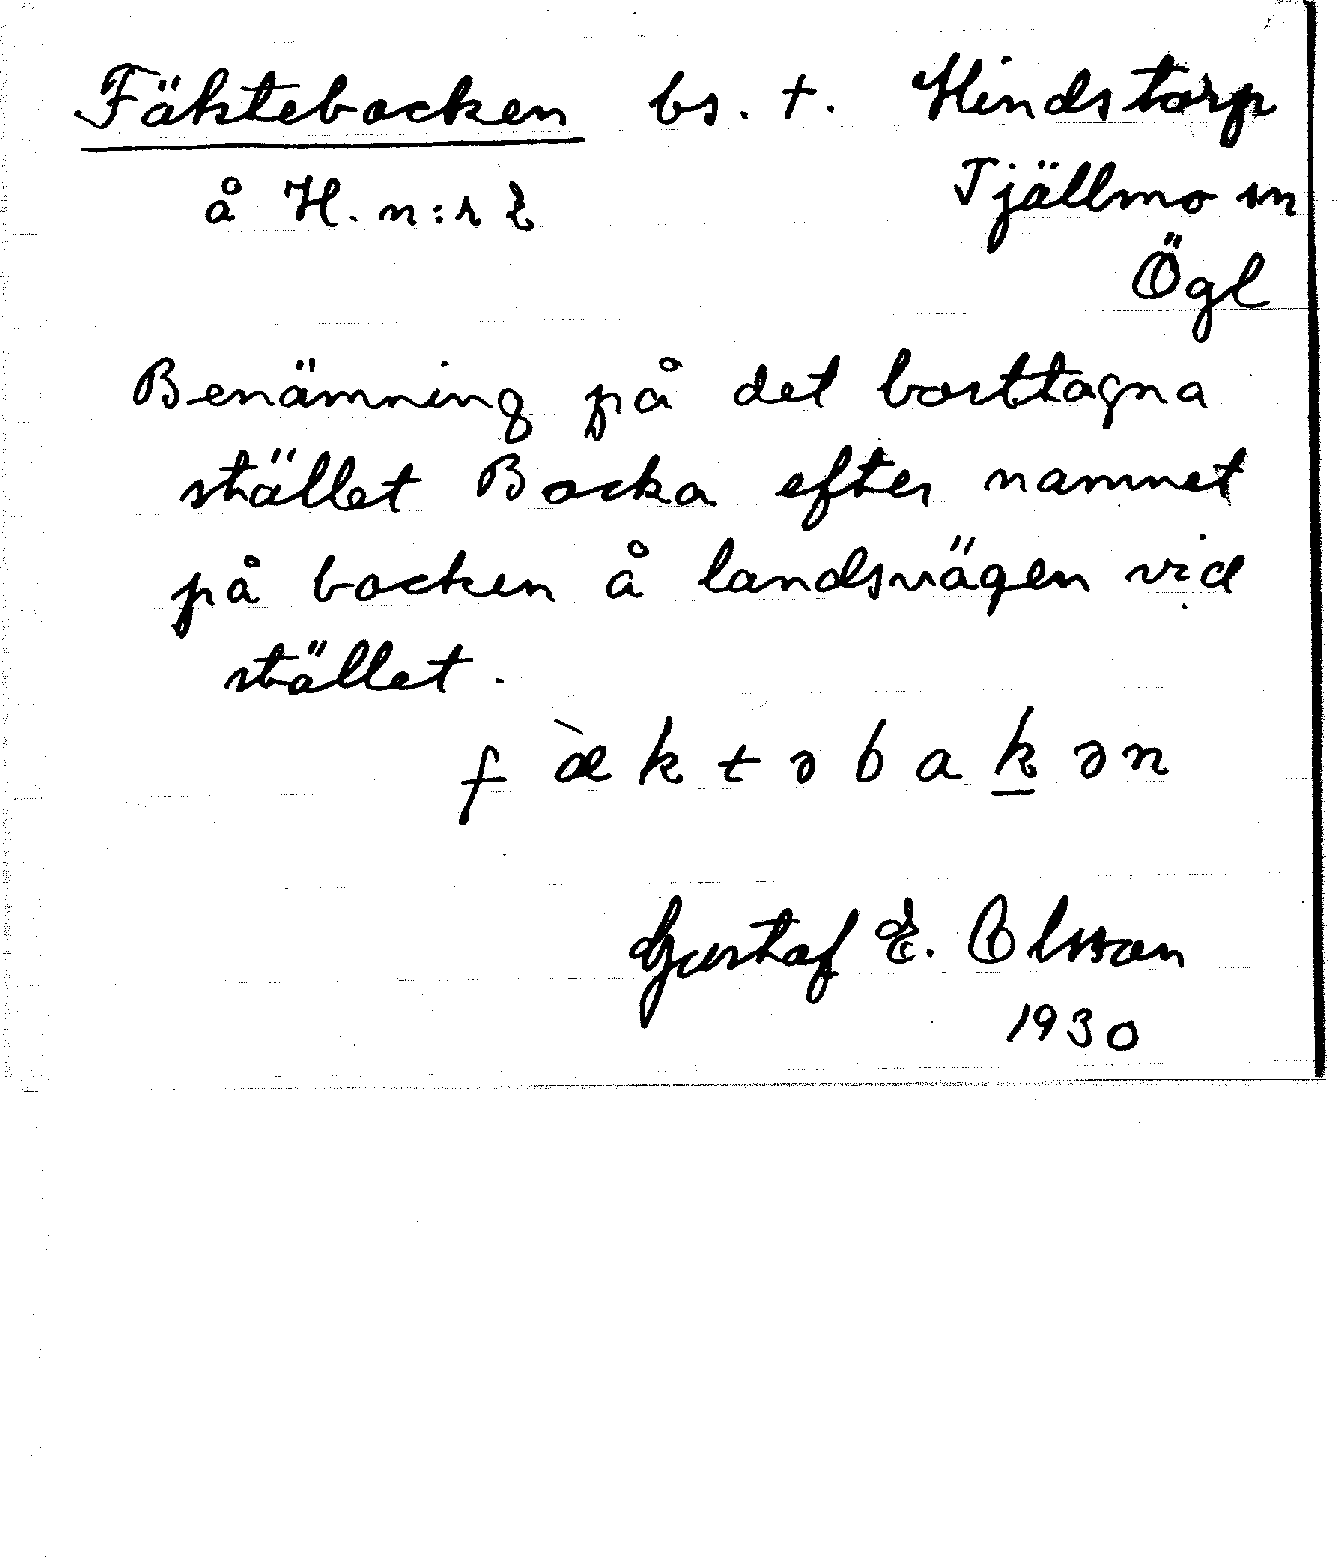 Fäktebacken bs. †. Hindstorp
å H. n:r 2 Tjällmo sn
Ögl
Benämning på det borttagna
stället Backa efter namnet
på backen å landsvägen vid
stället.
fæ̀ktəbak̲ən
Gustaf E. Olsson
1930